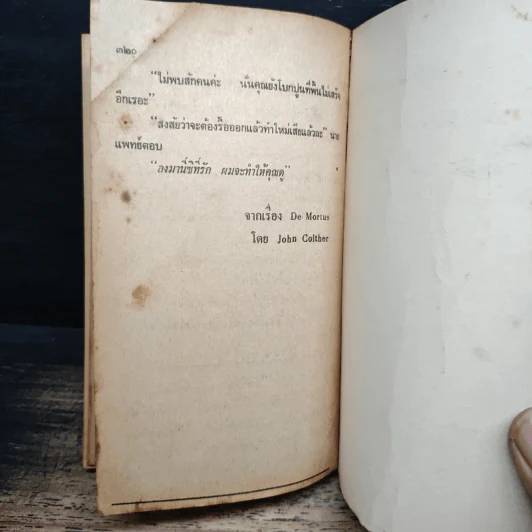 ๓๒๐
"ไม่พบสักคนค่ะ นั่นคุณยังโบกปูนที่พื้นไม่เสร็จ
อีกเรอะ"
"สงสัยว่าจะต้องรื้อออกแล้วทำใหม่เสียแล้วละ" นาย
แพทย์ตอบ
"ลงมานี่ซิที่รัก ผมจะทำให้คุณดู"
จากเรื่อง De Mortus
โดย John Colther